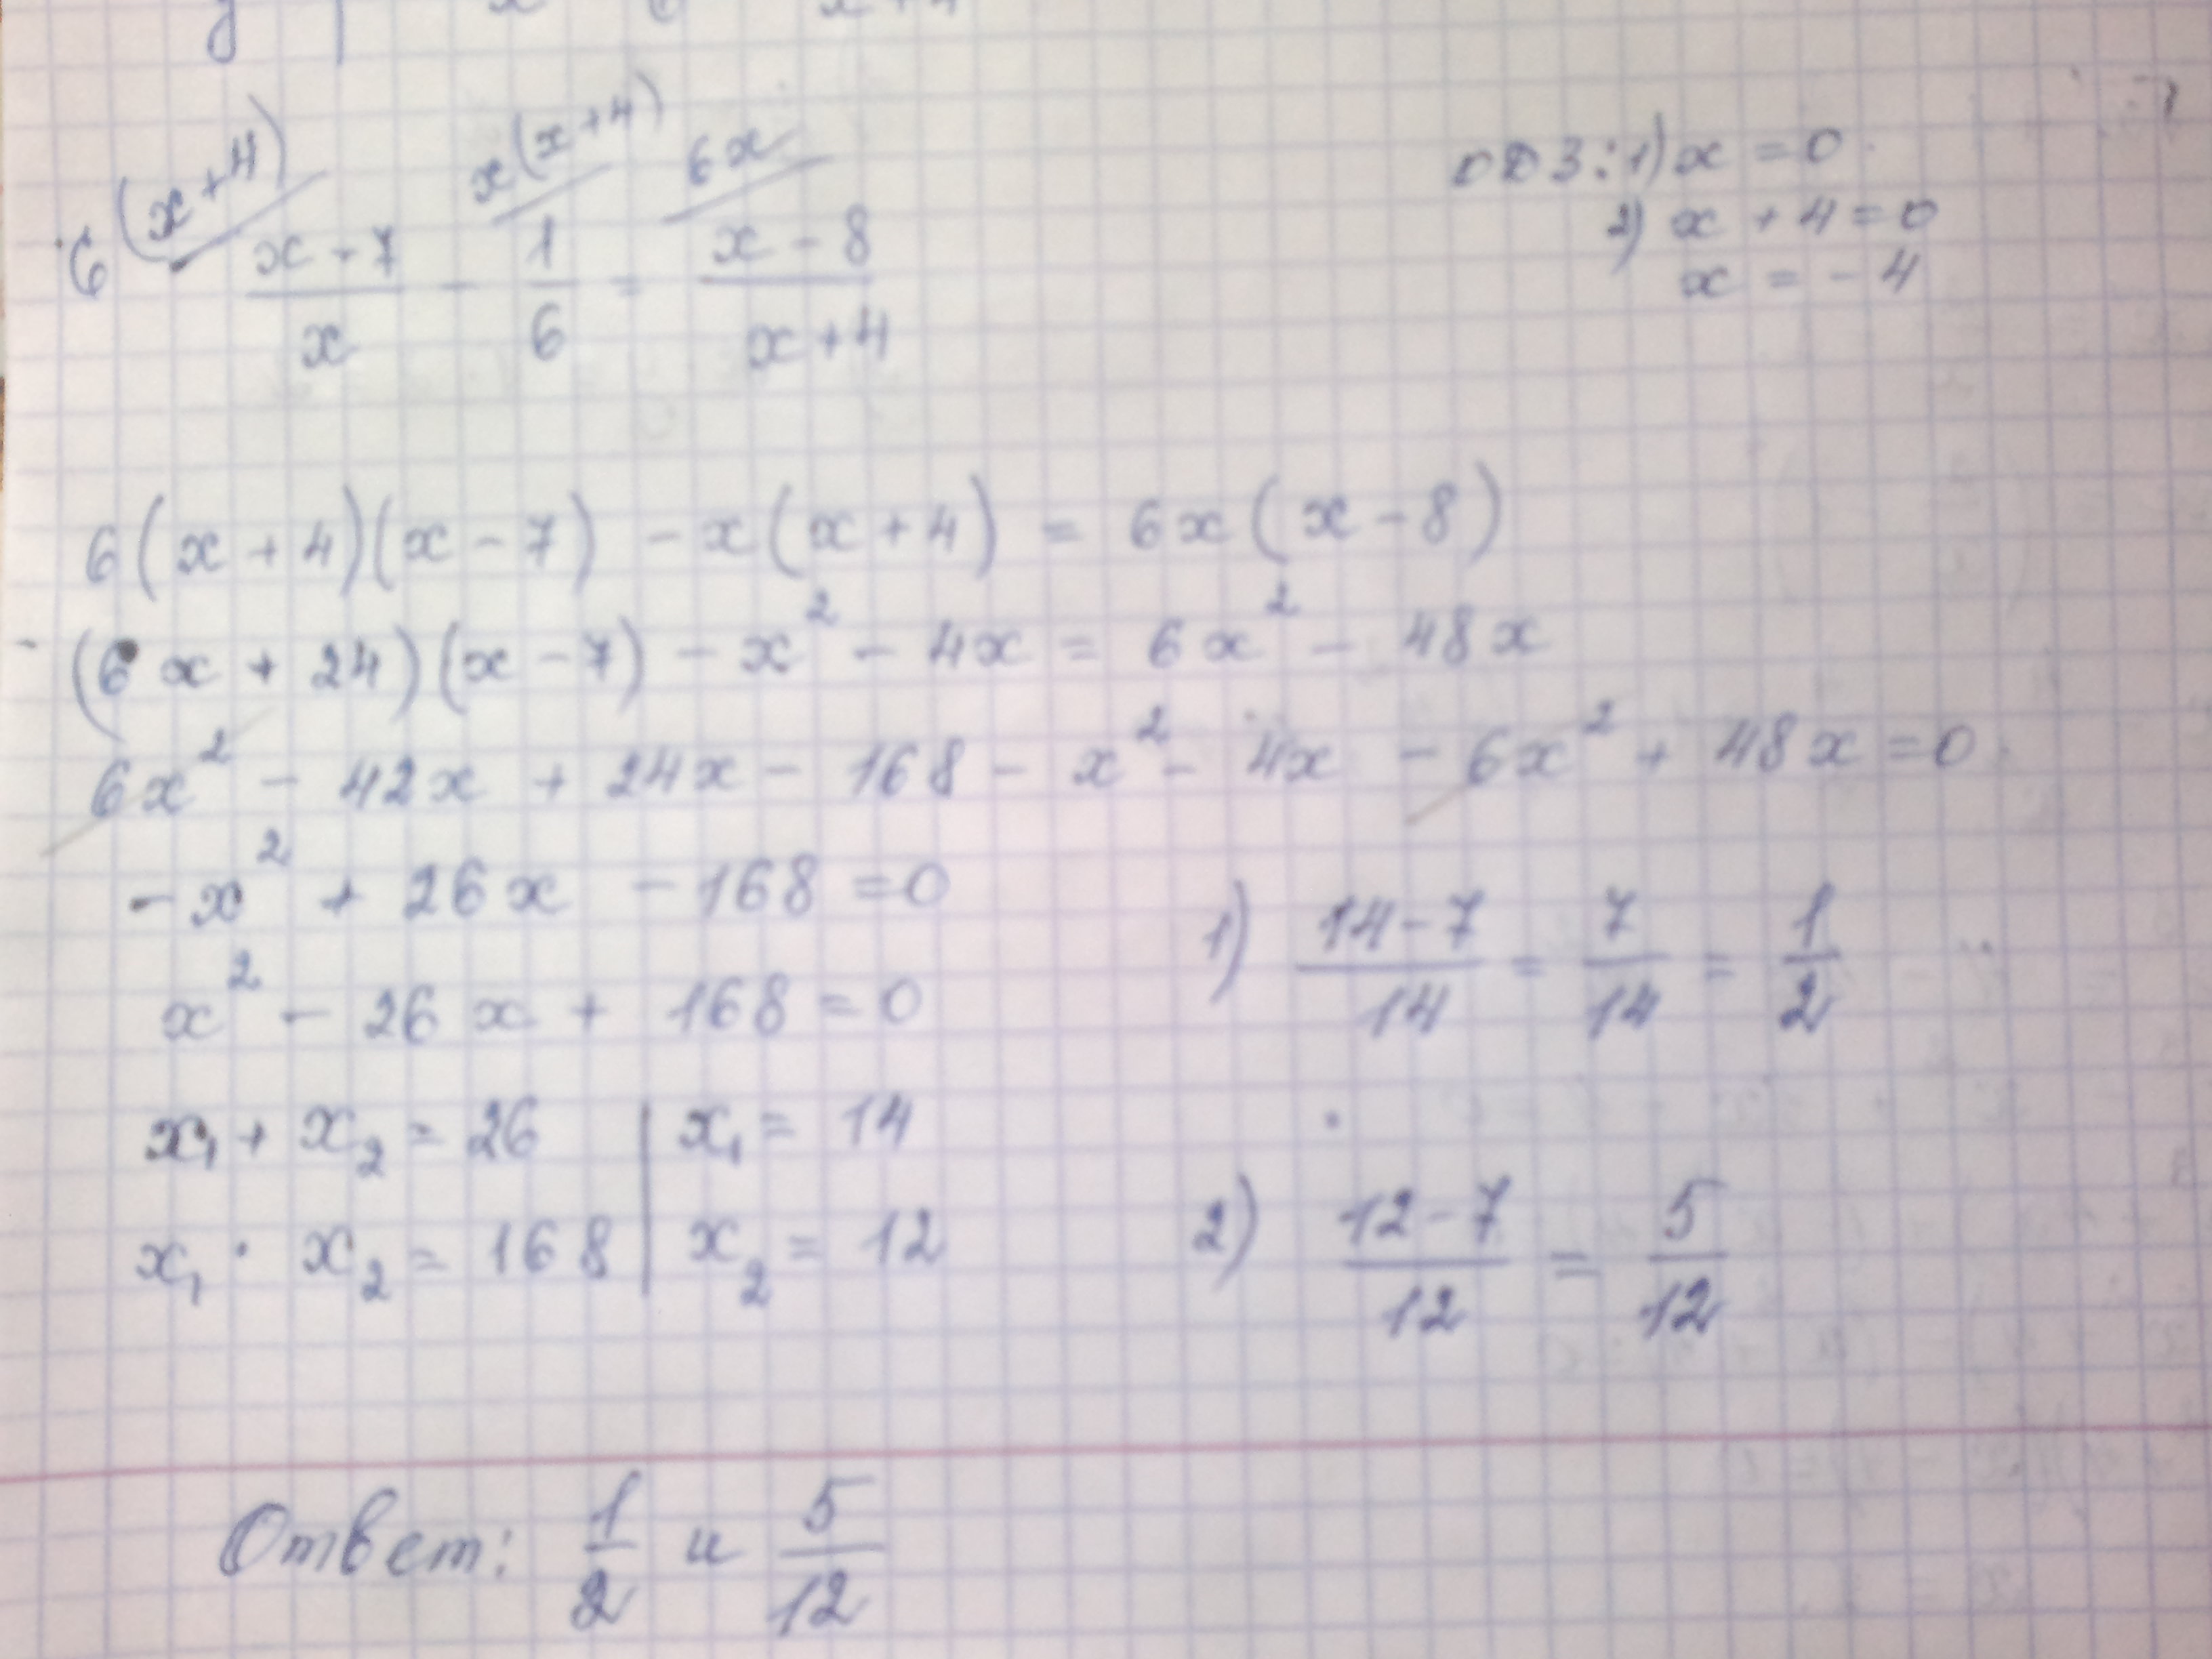 6(x+4) x(x+4) 6x
(x-7)/x - 1/6 = (x-8)/(x+4)
ОДЗ: 1) x = 0
2) x + 4 = 0
x = -4
6(x+4)(x-7) - x(x+4) = 6x(x-8)
(6x + 24)(x-7) - x² - 4x = 6x² - 48x
6x² - 42x + 24x - 168 - x² - 4x - 6x² + 48x = 0
-x² + 26x - 168 = 0
x² - 26x + 168 = 0
x₁ + x₂ = 26 | x₁ = 14
x₁ · x₂ = 168 | x₂ = 12
1) (14-7)/14 = 7/14 = 1/2
2) (12-7)/12 = 5/12
Ответ: 1/2 и 5/12